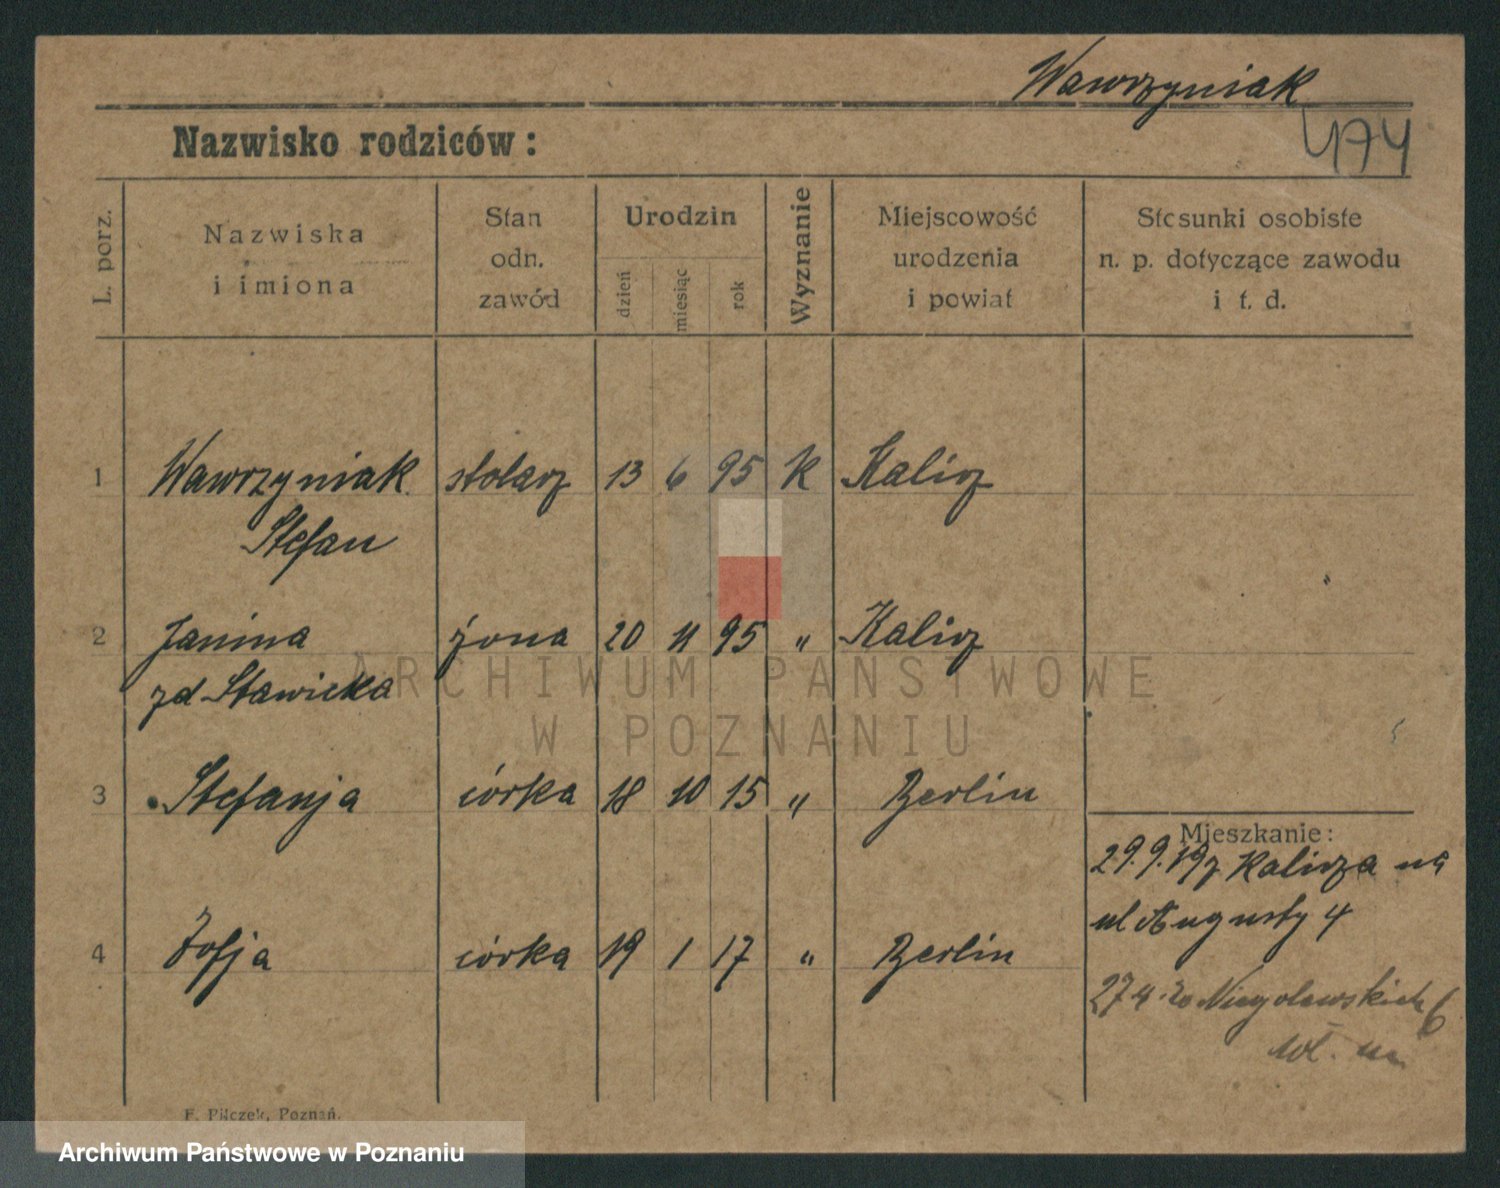 Wawrzyniak
474
Nazwisko rodziców:
L. porz.
Nazwiska
i imiona
Stan
odn.
zawód
Urodzin
dzień
miesiąc
rok
Wyznanie
Miejscowość
urodzenia
i powiat
Stosunki osobiste
n. p. dotyczące zawodu
i t. d.
1 Wawrzyniak stolarz 13 6 95 k Kalisz
Stefan
2 Janina żona 20 11 95 " Kalisz
zd Stawicka
ARCHIWUM PAŃSTWOWE
W POZNANIU
3 Stefanja córka 18 10 15 " Berlin
Mieszkanie:
29.9.19 z Kalisza na
ul Augusty 4
4 Zofja córka 19 1 17 " Berlin
27 4 20 Niegolewskich 6
F. Pilczek, Poznań.
Archiwum Państwowe w Poznaniu